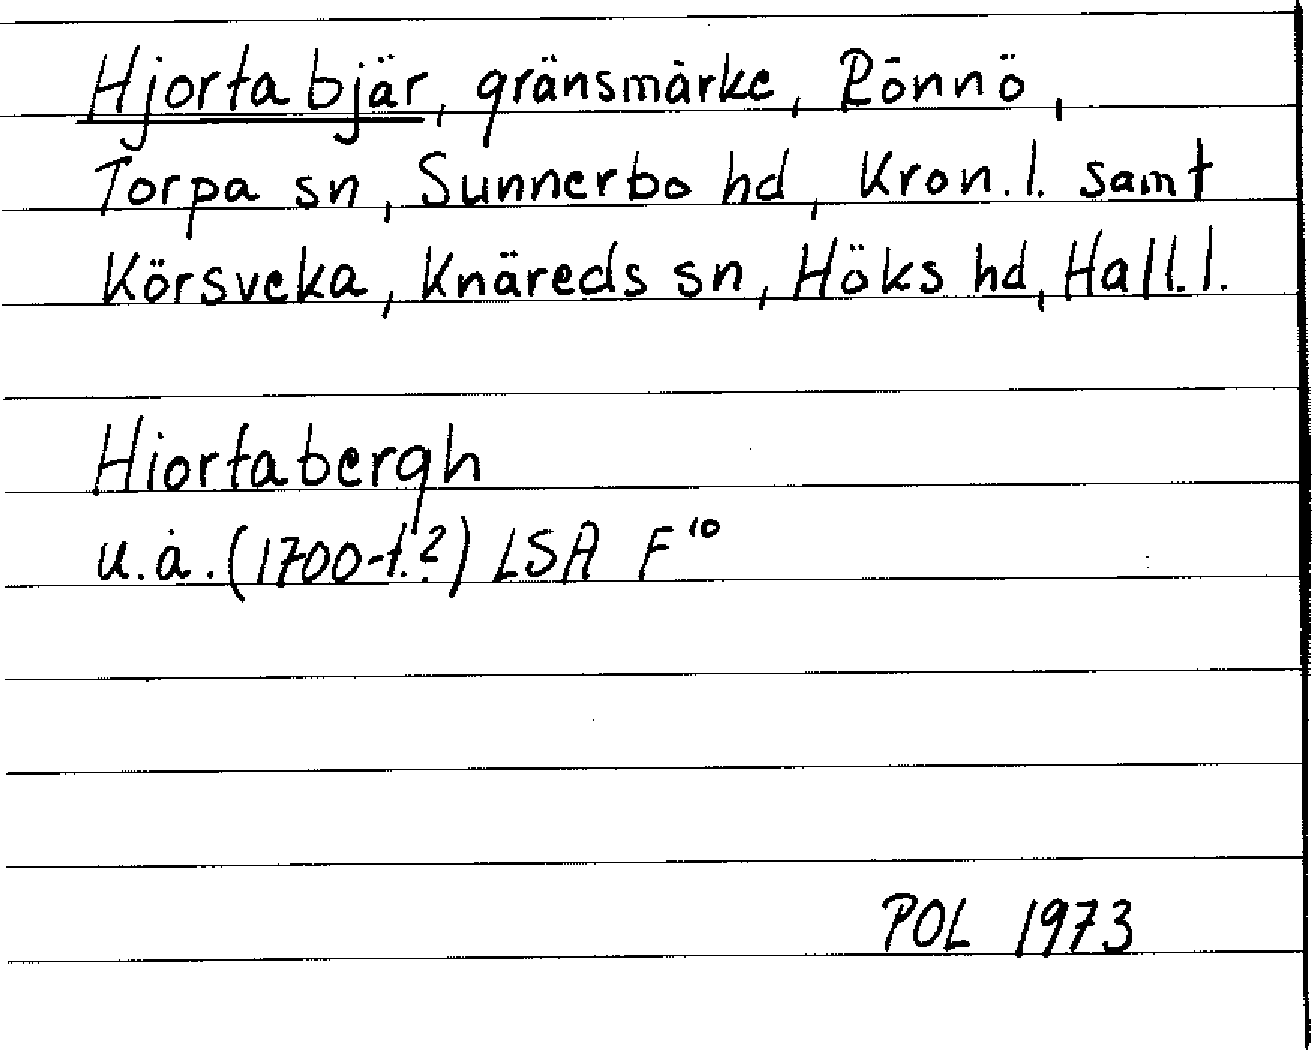 Hjortabjär, gränsmärke, Rönnö,
Torpa sn, Sunnerbo hd, Kron.l. samt
Körsveka, Knäreds sn, Höks hd, Hall.l.
Hiortabergh
u.å.(1700-t.?) LSA F¹⁰
POL 1973